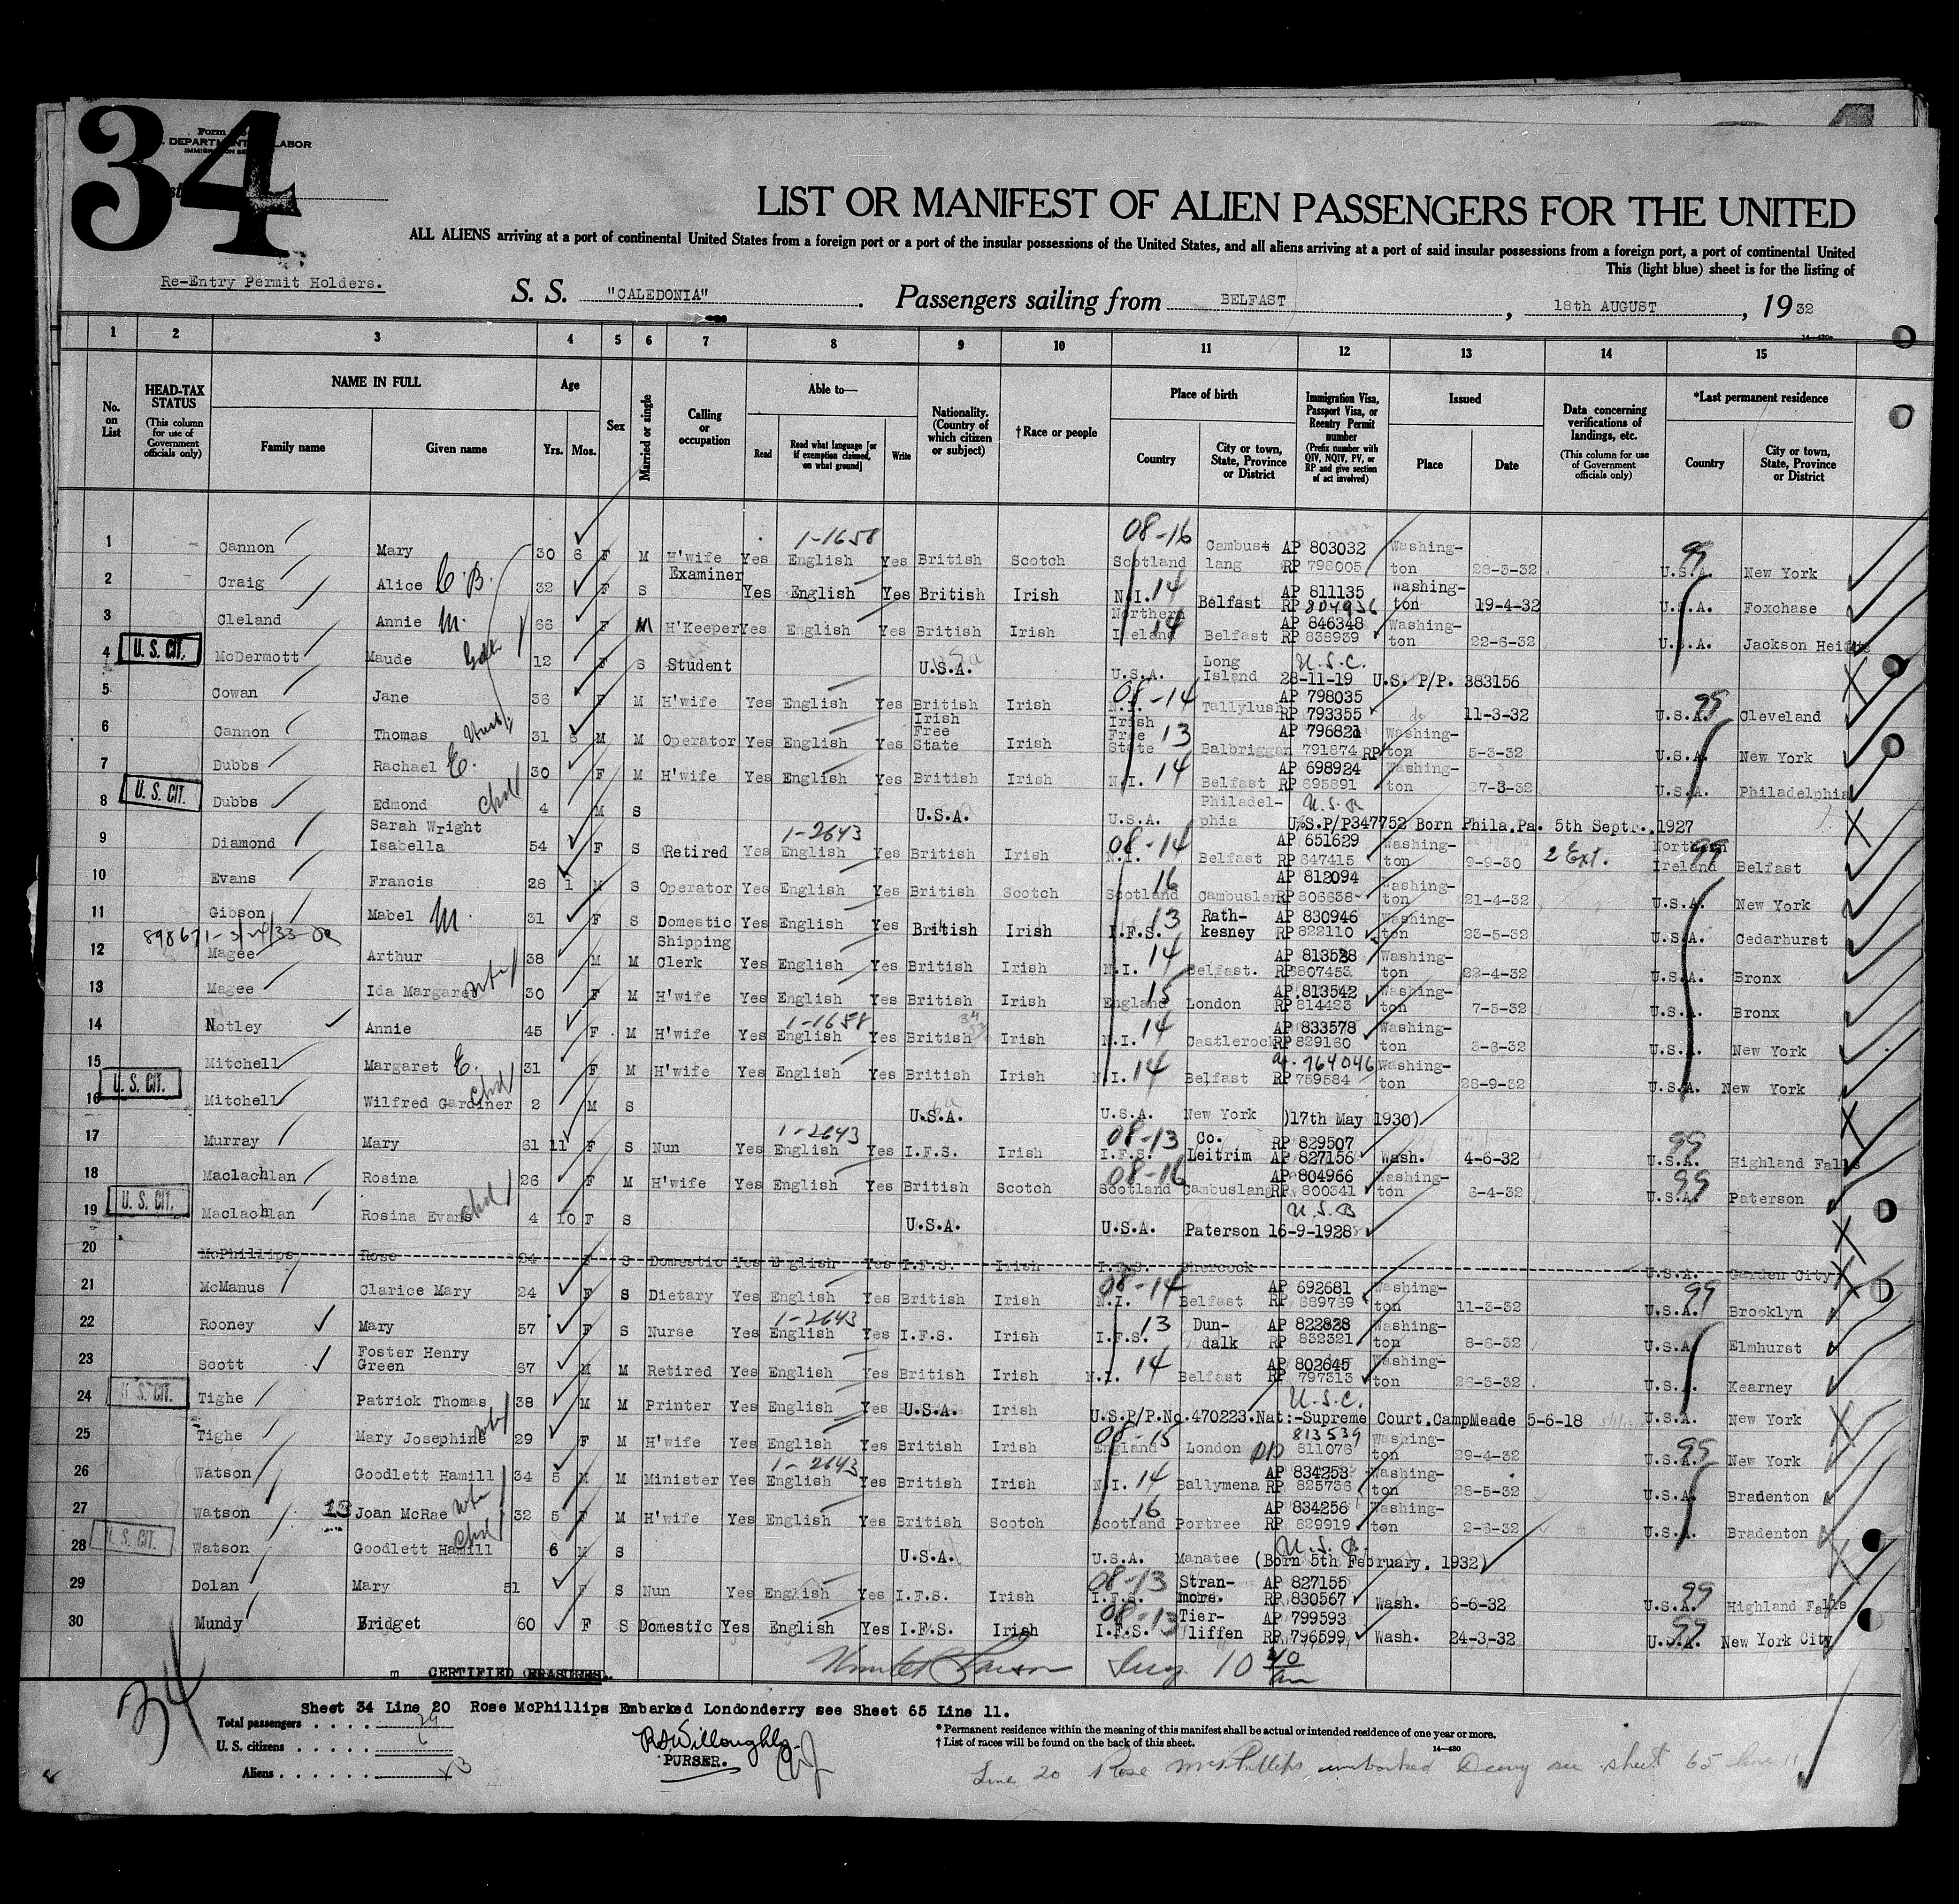 34
Form
DEPARTMENT LABOR
LIST OR MANIFEST OF ALIEN PASSENGERS FOR THE UNITED
ALL ALIENS arriving at a port of continental United States from a foreign port or a port of the insular possessions of the United States, and all aliens arriving at a port of said insular possessions from a foreign port, a port of continental United
This (light blue) sheet is for the listing of
Re-Entry Permit Holders.
S. S. "CALEDONIA" Passengers sailing from BELFAST, 18th AUGUST, 1932
1 2 3 4 5 6 7 8 9 10 11 12 13 14 15
No. on List
HEAD-TAX STATUS (This column for use of Government officials only)
NAME IN FULL Family name Given name
Age Yrs. Mos.
Sex
Married or single
Calling or occupation
Able to— Read Read what language [or if exemption claimed, on what ground] Write
Nationality. (Country of which citizen or subject)
†Race or people
Place of birth Country City or town, State, Province or District
Immigration Visa, Passport Visa, or Reentry Permit number (Prefix number with QIV, NQIV, PV, or RP and give section of act involved)
Issued Place Date
Data concerning verifications of landings, etc. (This column for use of Government officials only)
*Last permanent residence Country City or town, State, Province or District
1 Cannon Mary 30 6 F M H'wife Yes 1-1658 English Yes British Scotch 08-16 Scotland Cambuslang AP 803032 RP 798005 Washington 28-3-32 99 U.S.A. New York
2 Craig Alice C.B. 32 F S Examiner Yes English Yes British Irish N.I. 14 Belfast AP 811135 RP 804936 Washington 19-4-32 U.S.A. Foxchase
3 Cleland Annie M. 66 F M H'Keeper Yes English Yes British Irish Northern Ireland 14 Belfast AP 846348 RP 838939 Washington 22-6-32 U.S.A. Jackson Heights
U. S. CIT.
4 McDermott Maude 12 F S Student U.S.A. U.S.A. Long Island U.S.C. 28-11-19 U.S. P/P. 383156
5 Cowan Jane 36 F M H'wife Yes English Yes British Irish 08-14 N.I. Tallylush AP 798035 RP 793355 do 11-3-32 U.S.A. Cleveland
6 Cannon Thomas 31 M M Operator Yes English Yes Irish Free State Irish Irish Free State 13 Balbriggan AP 796821 791874 RP Washington 5-3-32 U.S.A. New York
7 Dubbs Rachael E. 30 F M H'wife Yes English Yes British Irish N.I. 14 Belfast AP 698924 RP 695891 Washington 27-3-32 U.S.A. Philadelphia
U. S. CIT.
8 Dubbs Edmond chd 4 M S U.S.A. U.S.A. Philadelphia U.S.P/P347752 Born Phila.Pa. 5th Septr. 1927
9 Diamond Sarah Wright Isabella 54 F S Retired Yes 1-2643 English Yes British Irish 08-14 N.I. Belfast AP 651629 RP 647415 Washington 9-9-30 2 Ext. Northern Ireland 99 Belfast
10 Evans Francis 28 1 M S Operator Yes English Yes British Scotch Scotland 16 Cambuslan AP 812094 RP 806638 Washington 21-4-32 U.S.A. New York
11 Gibson Mabel M. 31 F S Domestic Yes English Yes British Irish I.F.S. 13 Rathkesney AP 830946 RP 822110 Washington 23-5-32 U.S.A. Cedarhurst
12 Magee Arthur 38 M M Shipping Clerk Yes English Yes British Irish N.I. 14 Belfast. AP 813528 RP 807453 Washington 22-4-32 U.S.A. Bronx
13 Magee Ida Margaret 30 F M H'wife Yes English Yes British Irish England 15 London AP. 813542 RP 814423 Washington 7-5-32 U.S.A. Bronx
14 Notley Annie 45 F M H'wife Yes 1-1658 English Yes British Irish N.I. 14 Castlerock AP 833578 RP 829160 Washington 3-6-32 U.S.A. New York
15 Mitchell Margaret E. 31 F M H'wife Yes English Yes British Irish N.I. 14 Belfast 764046 RP 759584 Washington 28-9-32 U.S.A. New York
U. S. CIT.
16 Mitchell Wilfred Gardiner chd 2 M S U.S.A. U.S.A. New York )17th May 1930)
17 Murray Mary 61 11 F S Nun Yes 1-2643 English Yes I.F.S. Irish 08-13 I.F.S. Co. Leitrim RP 829507 AP 827156 Wash. 4-6-32 99 U.S.A. Highland Falls
18 Maclachlan Rosina 26 F M H'wife Yes English Yes British Scotch 08-16 Scotland Cambuslang AP 804966 RP 800341 Washington 6-4-32 99 U.S.A. Paterson
U. S. CIT.
19 Maclachlan Rosina Evans chd 4 10 F S U.S.A. U.S.A. Paterson 16-9-1928
20 McPhillips Rose F S Domestic Yes English Yes I.F.S. Irish I.F.S. Shercock U.S.A. Garden City
21 McManus Clarice Mary 24 F S Dietary Yes English Yes British Irish 08-14 N.I. Belfast AP 692681 RP 689769 Washington 11-3-32 99 U.S.A. Brooklyn
22 Rooney Mary 57 F S Nurse Yes 1-2643 English Yes I.F.S. Irish I.F.S. 13 Dundalk AP 822828 RP 832321 Washington 8-6-32 U.S.A. Elmhurst
23 Scott Foster Henry Green 67 M M Retired Yes English Yes British Irish N.I. 14 Belfast AP 802645 RP 797313 Washington 26-3-32 U.S.A. Kearney
U. S. CIT.
24 Tighe Patrick Thomas 38 M M Printer Yes English Yes U.S.A. Irish U.S.C. U.S.P/P.No.470223.Nat:-Supreme Court.CampMeade 5-6-18 U.S.A. New York
25 Tighe Mary Josephine 29 F M H'wife Yes English Yes British Irish 08-15 England London 813539 811078 Washington 29-4-32 U.S.A. New York
26 Watson Goodlett Hamill 34 5 M M Minister Yes 1-2643 English Yes British Irish N.I. 14 Ballymena AP 834253 RP 825736 Washington 28-5-32 U.S.A. Bradenton
27 Watson Joan McRae 32 5 F M H'wife Yes English Yes British Scotch Scotland 16 Portree AP 834256 RP 829919 Washington 2-6-32 U.S.A. Bradenton
U. S. CIT.
28 Watson Goodlett Hamill chd 6 M S U.S.A. U.S.A. Manatee (Born 5th February. 1932)
29 Dolan Mary 51 F S Nun Yes English Yes I.F.S. Irish 08-13 I.F.S. Stranmore. AP 827155 RP 830567 Wash. 6-6-32 99 U.S.A. Highland Falls
30 Mundy Bridget 60 F S Domestic Yes English Yes I.F.S. Irish 08-13 I.F.S. Tierliffen AP 799593 RP 796599 Wash. 24-3-32 99 U.S.A. New York City
CERTIFIED ERASURES.
34
Sheet 34 Line 20 Rose McPhillips Embarked Londonderry see Sheet 65 Line 11.
Total passengers . . . .
U. S. citizens . . . . .
Aliens . . . . . .
PURSER.
* Permanent residence within the meaning of this manifest shall be actual or intended residence of one year or more.
† List of races will be found on the back of this sheet.
14—430
Line 20 Rose McPhillips embarked Derry see sheet 65 line 11